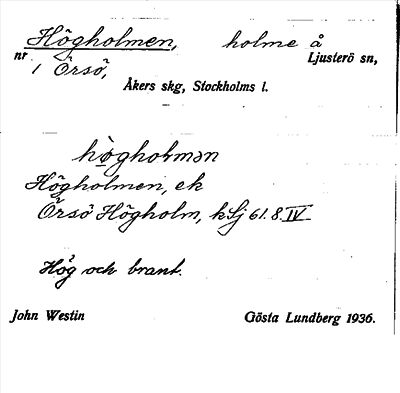 Högholmen, holme å
nr 1 Örsö, Ljusterö sn,
Åkers skg, Stockholms l.
högholmən
Högholmen, ek
Örsö Högholm, k Lj 61.8.IV
Hög och brant.
John Westin Gösta Lundberg 1936.